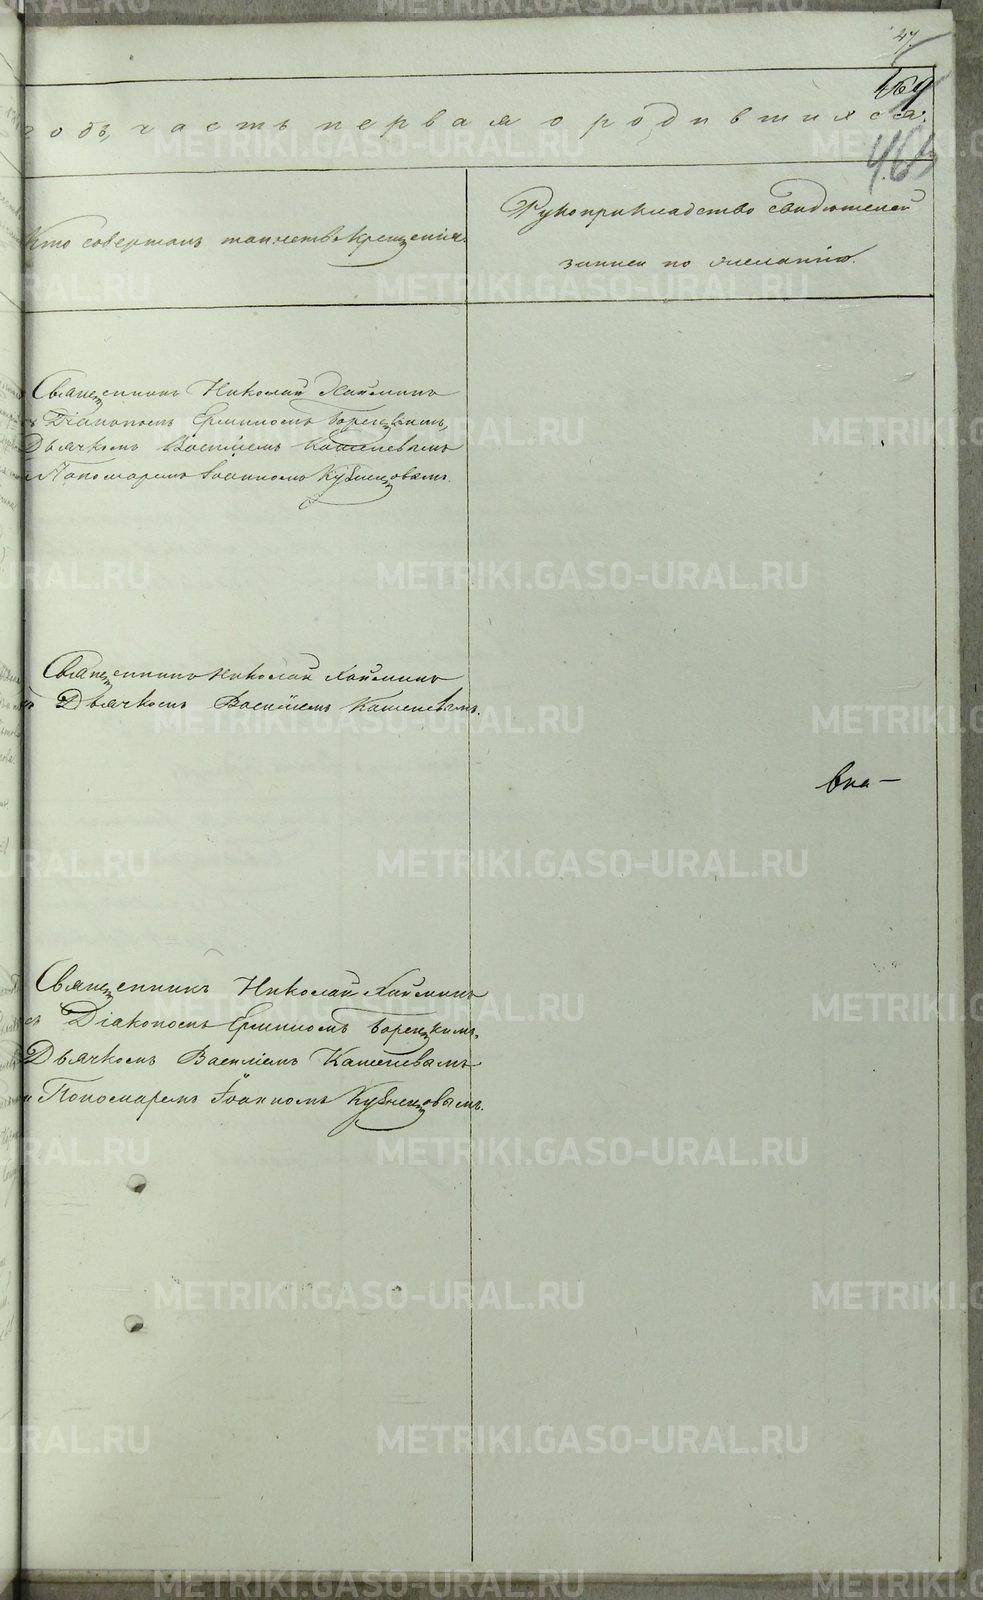 47.
169
годъ, часть первая о родившихся.
465
Кто совершалъ таинство крещенія.
Рукоприкладство свидетелей
записи по желанію.
Священникъ Николай Хаймин
съ Діакономъ Ермиломъ Борецкимъ,
Дьячкомъ Василіемъ Кашевымъ
и Пономаремъ Іоанномъ Кузнецовымъ.
Священникъ Николай
съ Дьячкомъ Василіемъ
Священникъ Николай
съ Діакономъ Ермиломъ Борецкимъ,
Дьячкомъ Василіемъ
и Пономаремъ Іоанномъ Кузнецовымъ.
METRIKI.GASO-URAL.RU